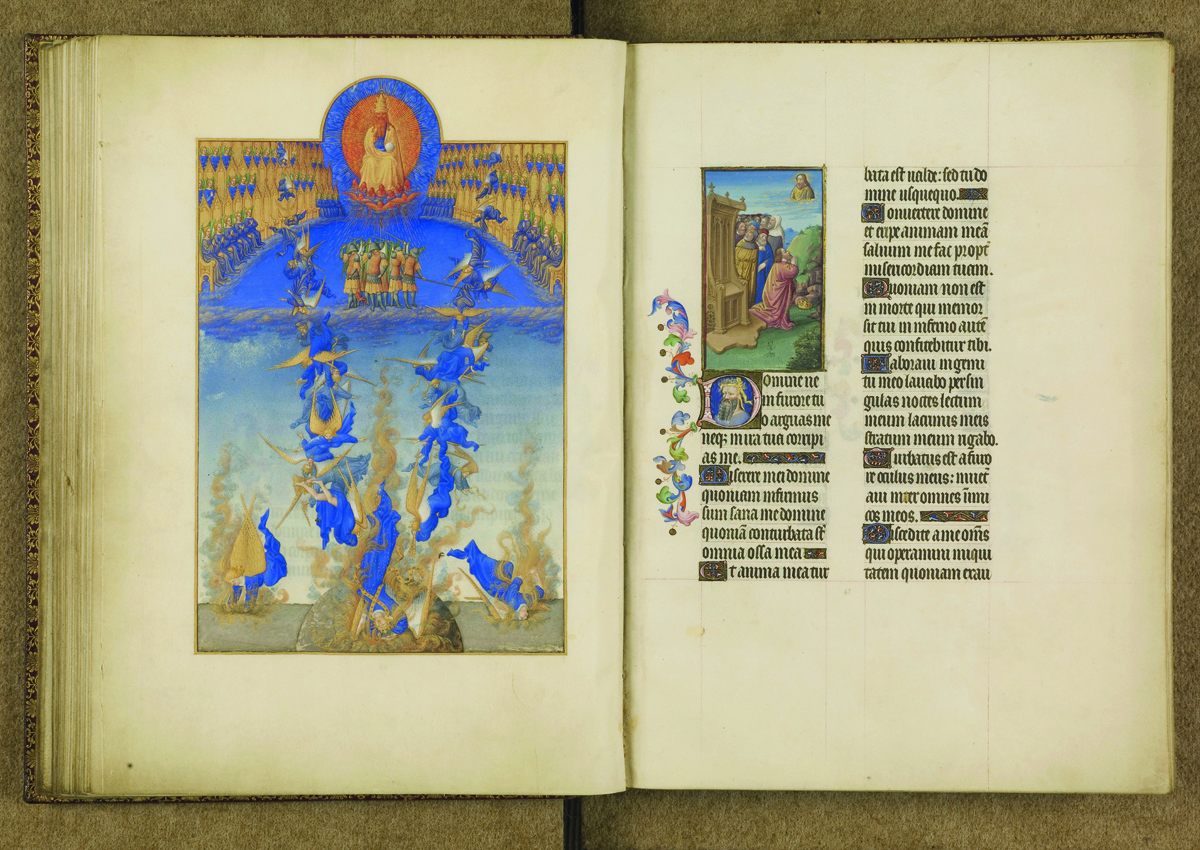 omine ne
in furore tu
o arguas me
neqꝫ in ira tua corripi
as me.
Miserere mei domine
quoniam infirmus
sum sana me domine
quoniā conturbata sūt
omnia ossa mea
Et anima mea tur
bata est ualde: sed tu do
mine usquequo.
Conuertere domine
et eripe animam meā
saluum me fac propt̄
misericordiam tuam.
Quoniam non est
in morte qui memor
sit tui in inferno autē
quis confitebitur tibi.
Laboraui in gemi
tu meo lauabo per sin
gulas noctes lectum
meum lacrimis meis
stratum meum rigabo.
Turbatus est a furo
re oculus meus: inuet̄
aui inter omnes inimi
cos meos.
Discedite a me omēs
qui operamini iniqui
tatem quoniam exau